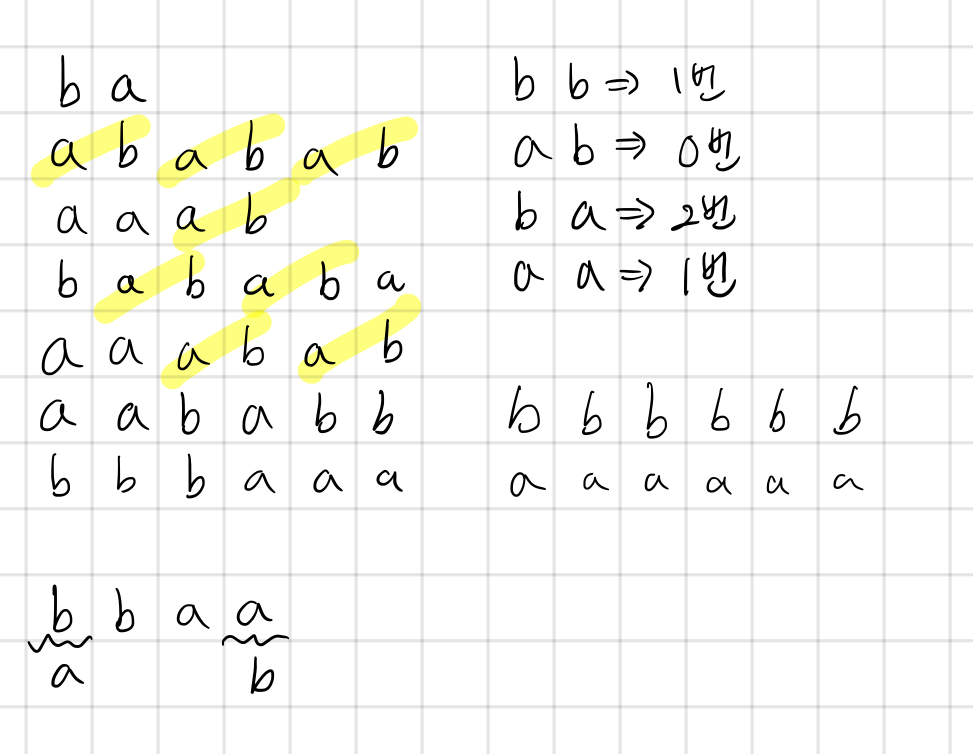 b a
a b a b a b
a a a b
b a b a b a
a a a b a b
a a b a b b
b b b a a a
b b ⇒ 1번
a b ⇒ 0번
b a ⇒ 2번
a a ⇒ 1번
b b b b b b
a a a a a a
b b a a
a b